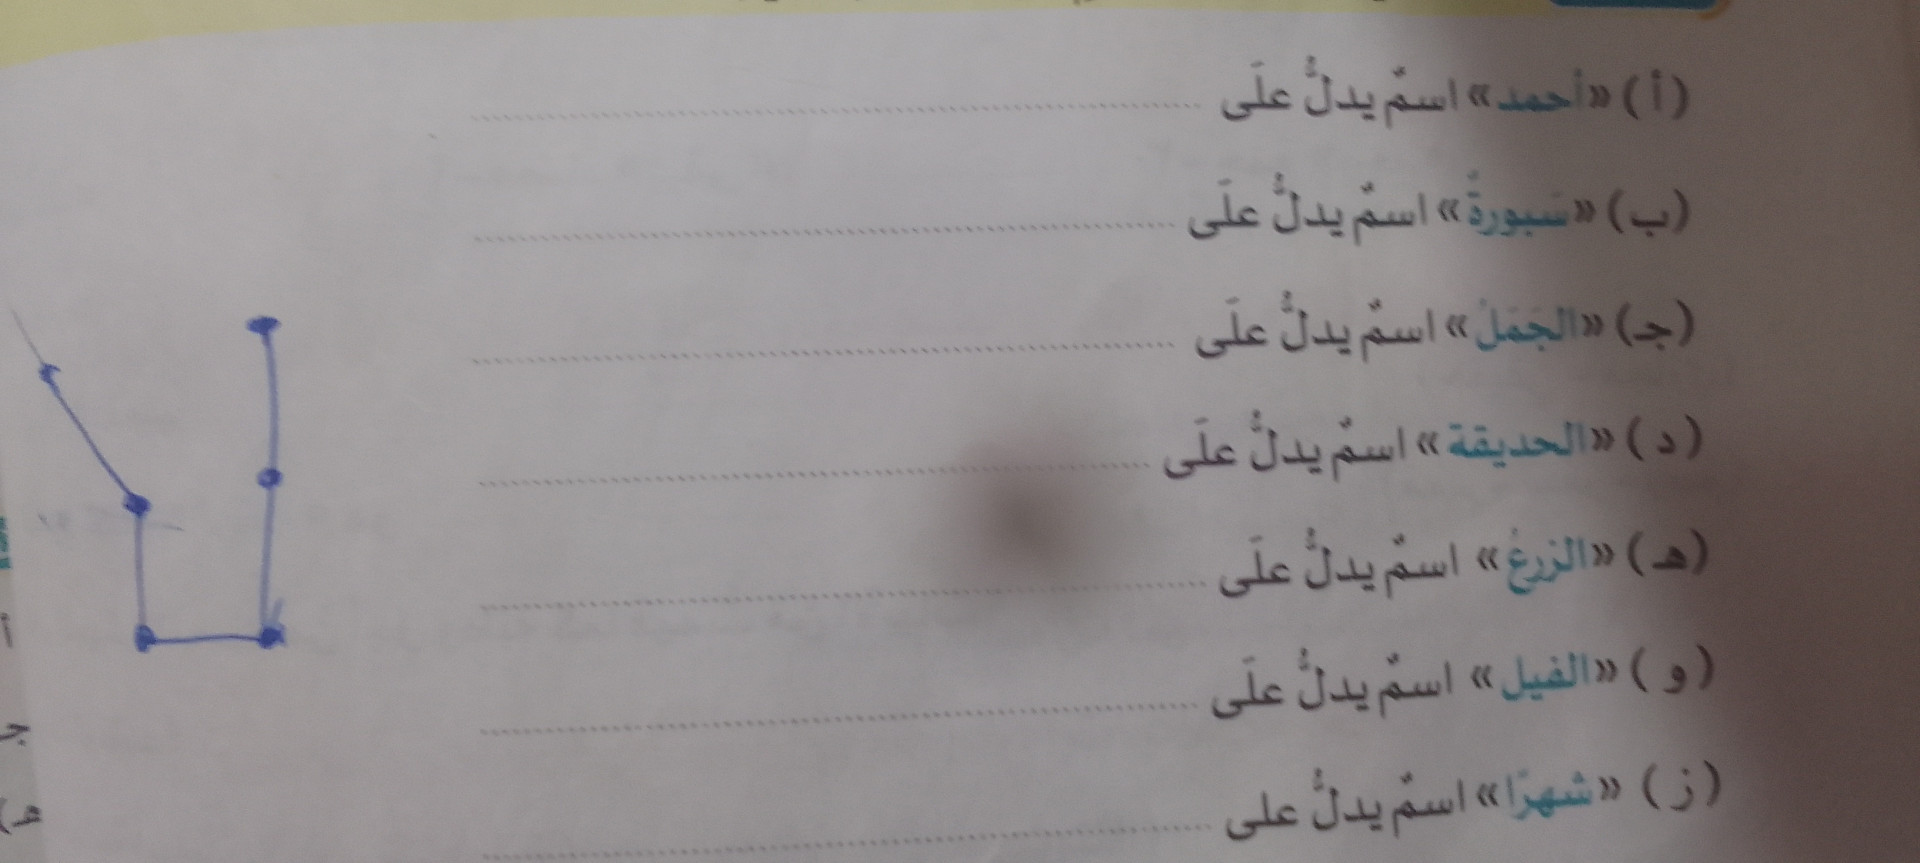 (أ) «أحمد» اسمٌ يدلُّ علَى
(ب) «سَبورةٌ» اسمٌ يدلُّ علَى
(جـ) «الجَمَلُ» اسمٌ يدلُّ علَى
(د) «الحديقة» اسمٌ يدلُّ علَى
(هـ) «الزرعُ» اسمٌ يدلُّ علَى
(و) «الفيل» اسمٌ يدلُّ علَى
(ز) «شهرًا» اسمٌ يدلُّ على
أ
جـ
هـ)